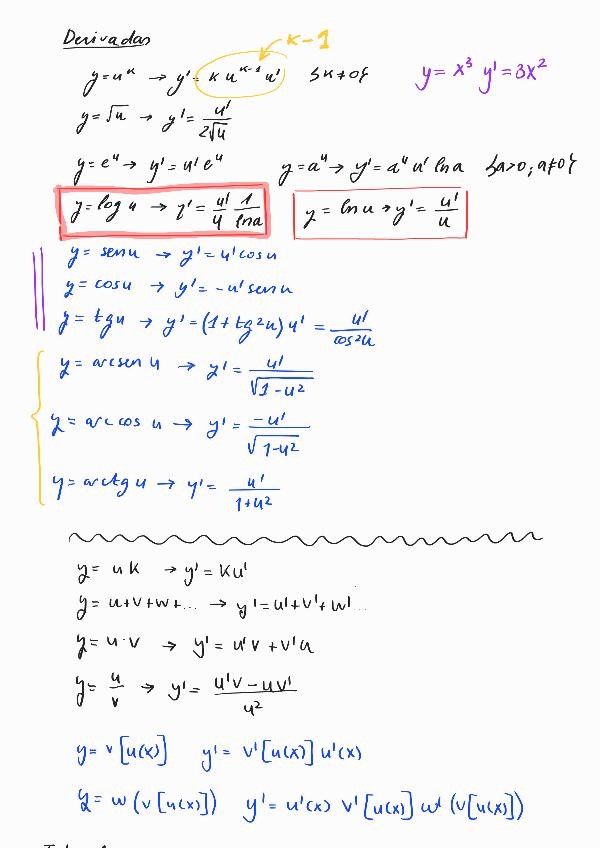 Derivadas
k-1
y=uᵏ → y'= k uᵏ⁻¹ u' {k≠0} y = x³ y' = 3x²
y=√u → y' = u'/2√u
y=eᵘ → y'= u'eᵘ y=aᵘ → y'= aᵘ u' ln a {a>0; a≠0}
y=log u → y'= u'/u 1/lna y = ln u → y'= u'/u
y= sen u → y'= u' cos u
y= cos u → y'= -u' sen u
y= tg u → y'= (1+tg²u) u' = u'/cos²u
y= arcsen u → y'= u'/√1-u²
y= arccos u → y'= -u'/√1-u²
y= arctg u → y'= u'/1+u²
y= uk → y'= Ku'
y= u+v+w+... → y'= u'+v'+w'...
y= u·v → y'= u'v + v'u
y= u/v → y'= u'v - uv'/u²
y= v[u(x)] y'= v'[u(x)] u'(x)
y= w(v[u(x)]) y'= u'(x) v'[u(x)] w'(v[u(x)])